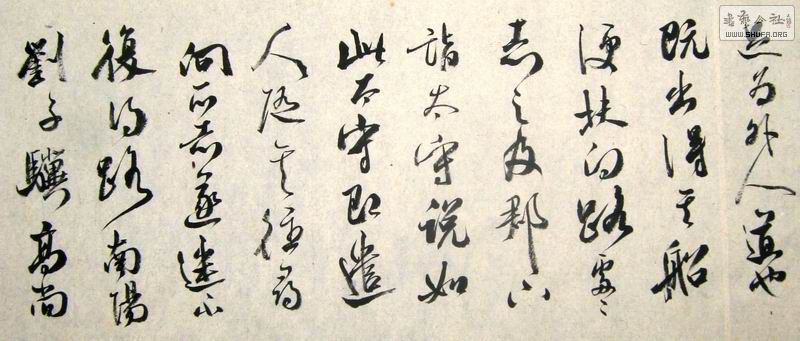 書藝公社
WWW.SHUFA.ORG
足為外人道也
既出得其船
便扶向路處〻
志之及郡下
詣太守說如
此太守即遣
人随其往尋
向所志遂迷不
復得路南陽
劉子驥高尚